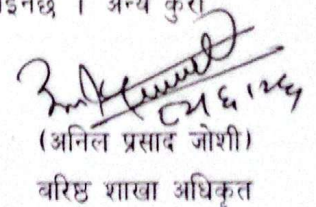 इनछ । अन्य कुरा
(अनिल प्रसाद जोशी)
वरिष्ठ शाखा अधिकृत